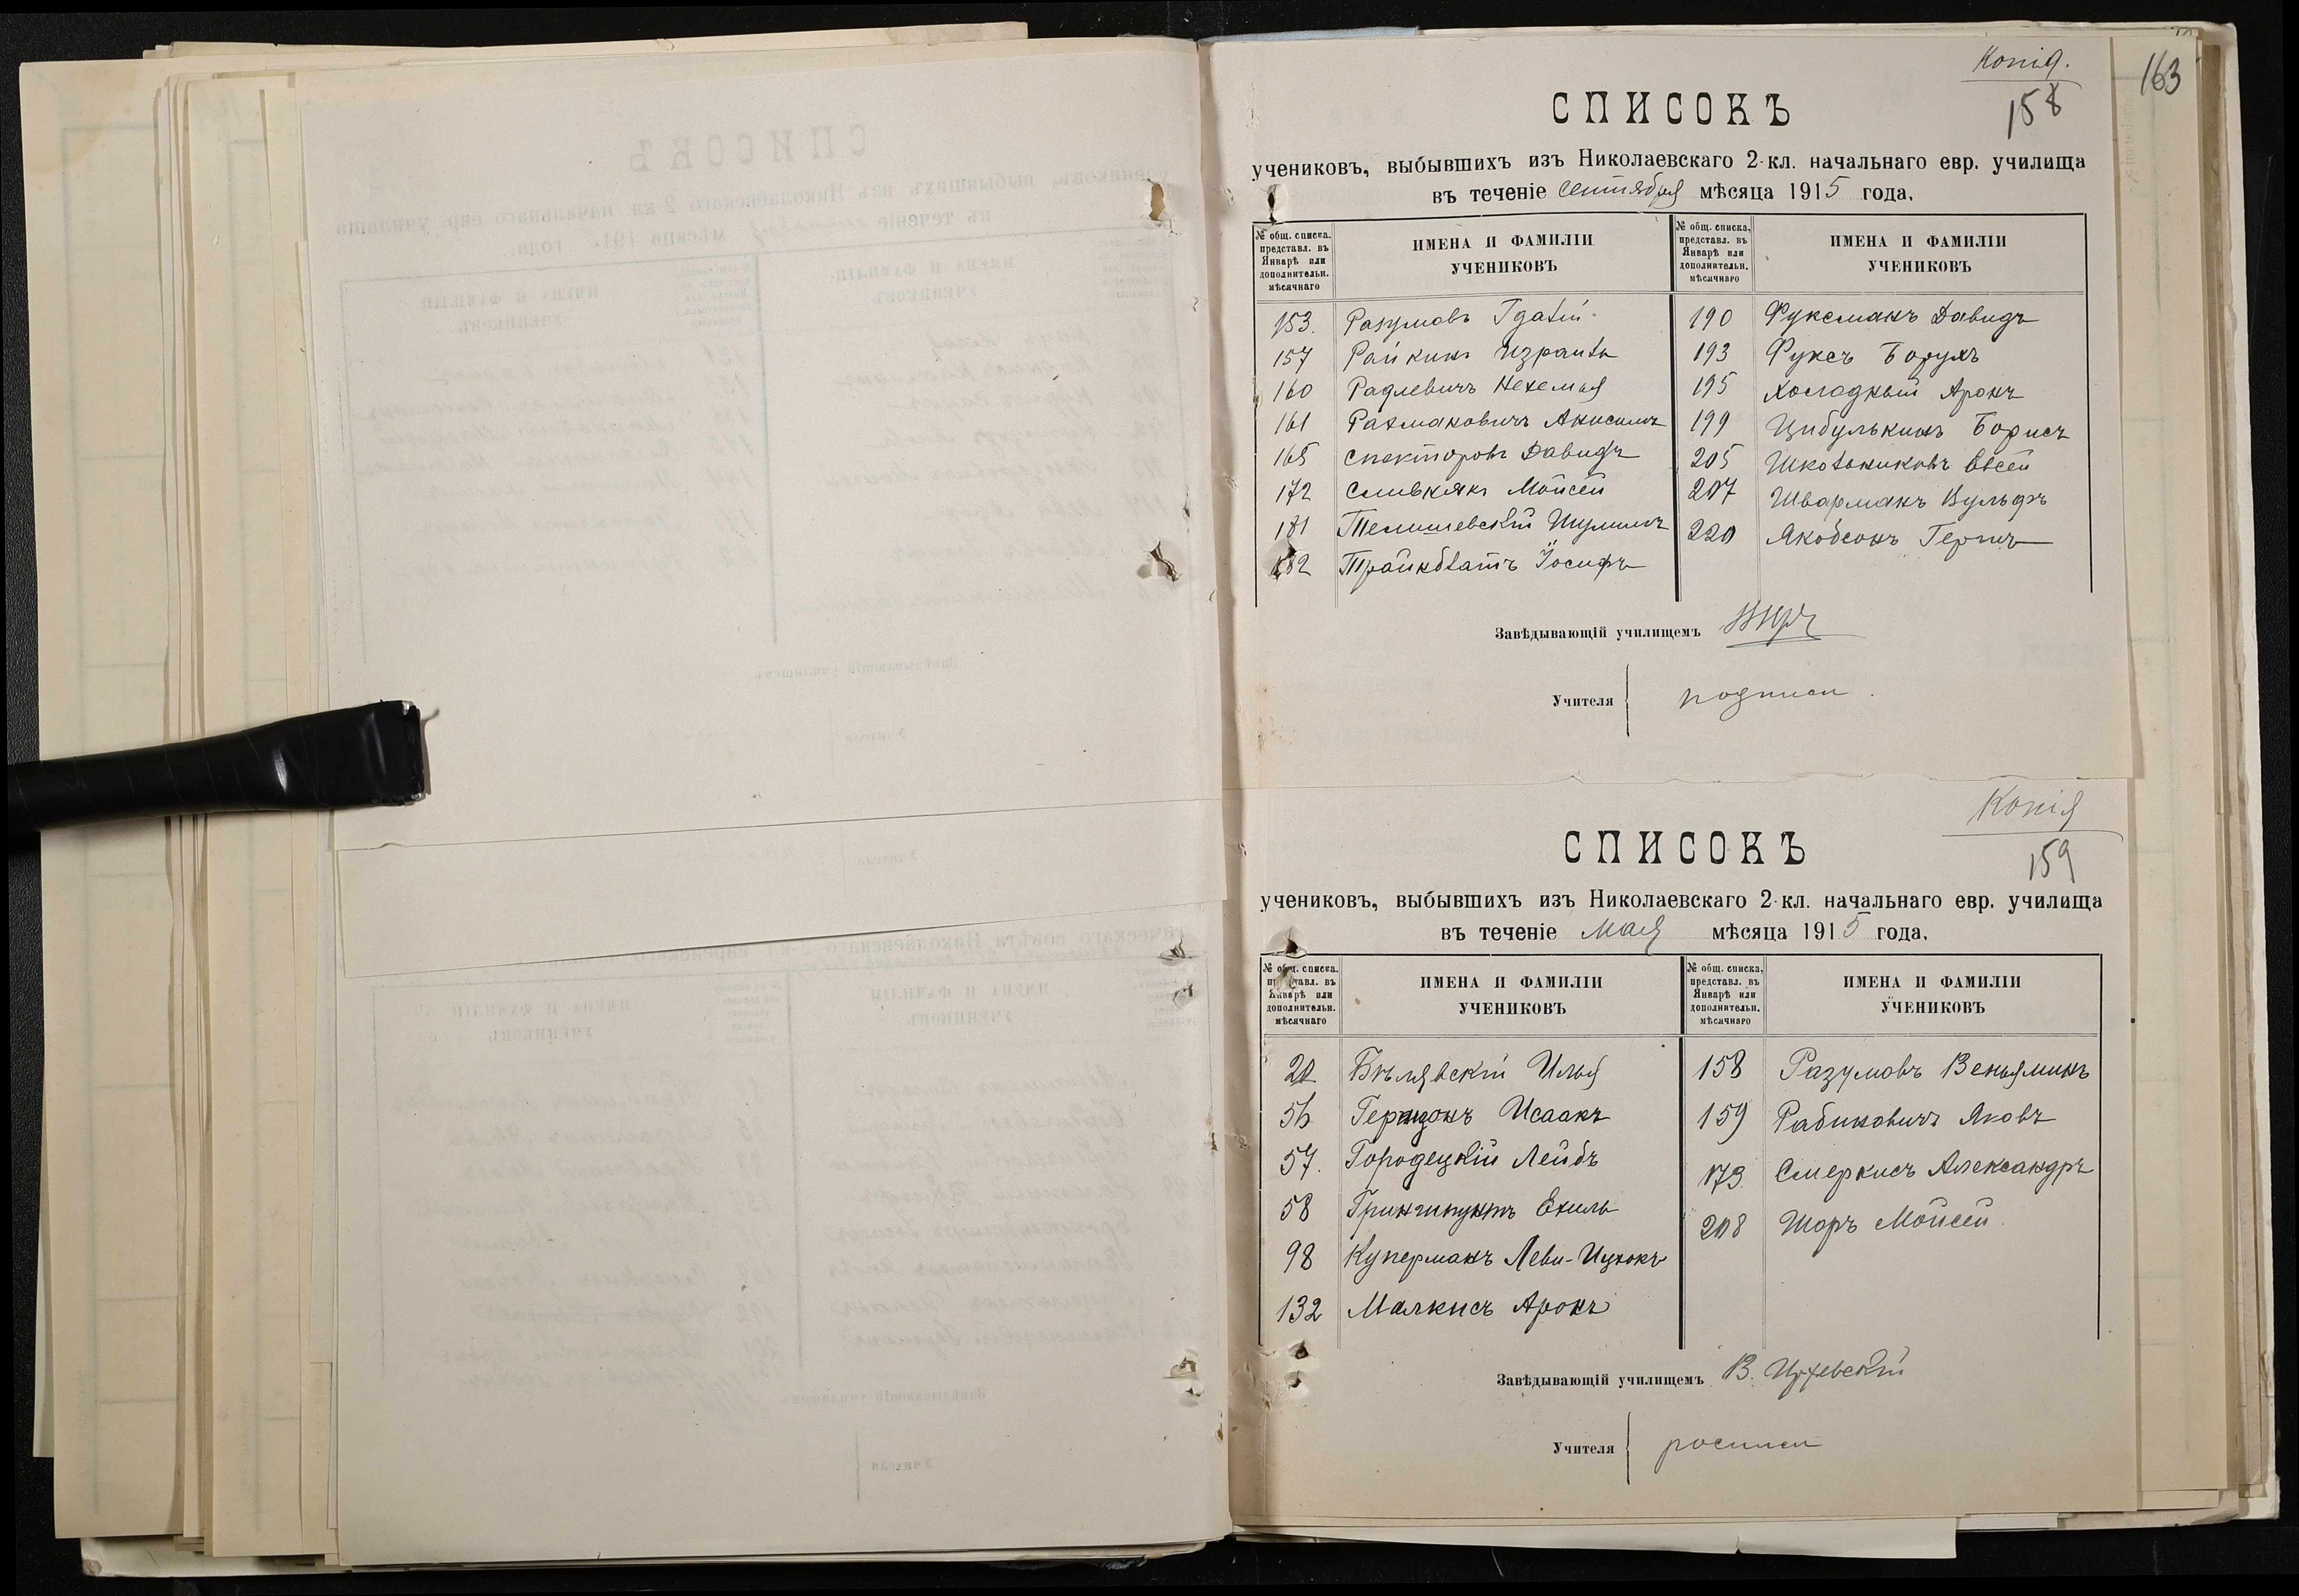 163
Копія.
158
СПИСОКЪ
учениковъ, выбывшихъ изъ Николаевскаго 2-кл. начальнаго евр. училища
въ теченіе сентября мѣсяца 1915 года.
№ общ. списка, представл. въ Январѣ или дополнительн. мѣсячнаго
ИМЕНА И ФАМИЛІИ УЧЕНИКОВЪ
№ общ. списка, представл. въ Январѣ или дополнительн. мѣсячнаго
ИМЕНА И ФАМИЛІИ УЧЕНИКОВЪ
153. Разумовъ Гдалій
157 Райкинъ Израиль
160 Радлевичъ Нехемья
161 Рахмановичъ
165 Спекторовъ Давидъ
172 Сливкякъ Мойсей
181 Телишевскій Шулимъ
182 Трайнблатъ Іосифъ
190 Фуксманъ Давидъ
193 Фуксъ Борухъ
195 Холодный Аронъ
199 Цибулькинъ Борисъ
205 Школьниковъ Евсей
207 Шварманъ Вульфъ
220 Якобсонъ Гершъ
Завѣдывающій училищемъ
Учителя подписи.
Копія
159
СПИСОКЪ
учениковъ, выбывшихъ изъ Николаевскаго 2-кл. начальнаго евр. училища
въ теченіе Мая мѣсяца 1915 года.
№ общ. списка, представл. въ Январѣ или дополнительн. мѣсячнаго
ИМЕНА И ФАМИЛІИ УЧЕНИКОВЪ
№ общ. списка, представл. въ Январѣ или дополнительн. мѣсячнаго
ИМЕНА И ФАМИЛІИ УЧЕНИКОВЪ
20 Бѣлявскій Илья
56 Исаакъ
57. Городецкій Лейбъ
58 Грингпунтъ Ехиль
98 Куперманъ Леви-Ицхокъ
132 Малкисъ Аронъ
158 Разумовъ Веньяминъ
159 Рабиновичъ Яковъ
173 Смеркисъ Александръ
208 Шоръ Мойсей
Завѣдывающій училищемъ В.
Учителя росписи